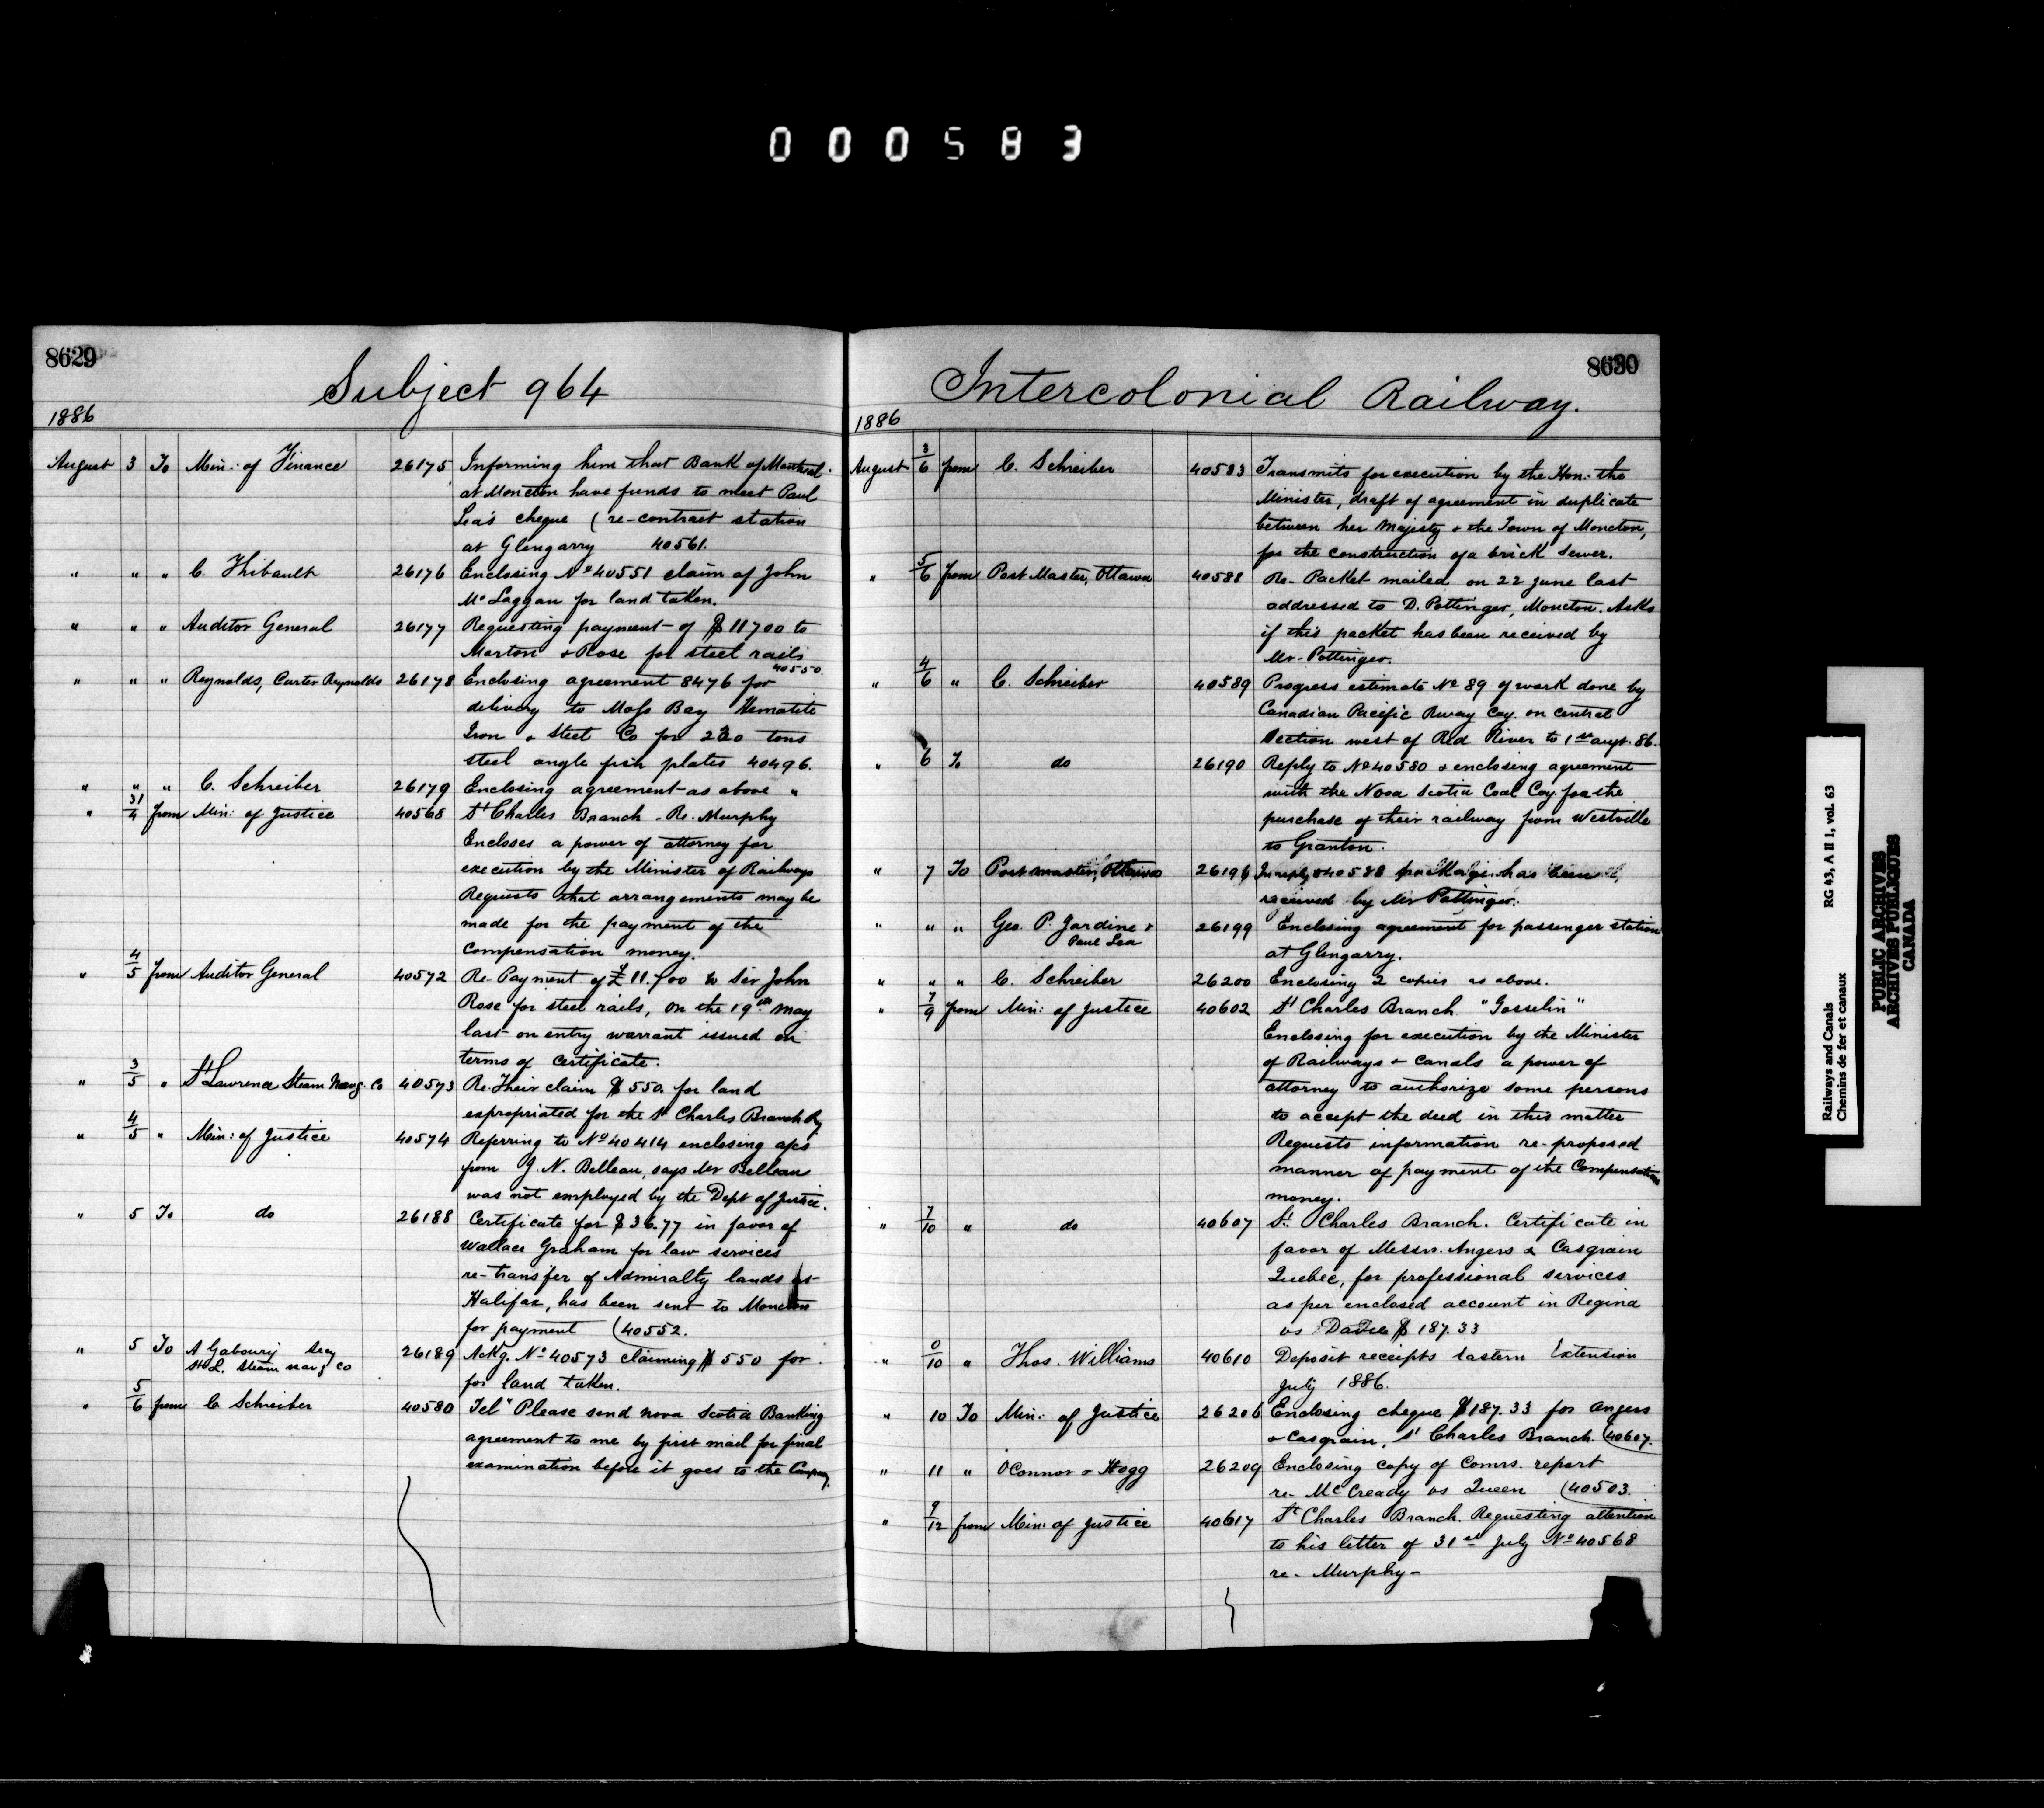 000583
8629
Subject 964
1886
August 3 To Min: of Finance 26175 Informing him that Bank of Montreal
at Moncton have funds to meet Paul
Lea's cheque (re-contract station
at Glengarry 40561.
" " " C. Thibault 26176 Enclosing No 40551 claim of John
McLaggan for land taken.
" " " Auditor General 26177 Requesting payment of $11700 to
Morton & Rose for steel rails
40550
" " " Reynolds, Carter Reynolds 26178 Enclosing agreement 8476 for
delivery to Moss Bay Hematite
Iron & Steel Co for 230 tons
steel angle fish plates 40496.
" " " C. Schreiber 26179 Enclosing agreement as above "
" 31/4 from Min: of Justice 40568 St Charles Branch - Re. Murphy
Encloses a power of attorney for
execution by the Minister of Railways
Requests that arrangements may be
made for the payment of the
compensation money.
" 4/5 from Auditor General 40572 Re. Payment of £11.700 to Sir John
Rose for steel rails, on the 19th May
last on entry warrant issued on
terms of certificate.
" 3/5 " St Lawrence Steam Navg. Co 40573 Re. Their claim $550. for land
expropriated for the St Charles Branch Ry
" 4/5 " Min: of Justice 40574 Referring to No 40414 enclosing a/cs
from J. N. Belleau, says Mr Belleau
was not employed by the Dept of Justice.
" 5 To do 26188 Certificate for $36.77 in favor of
Wallace Graham for law services
re-transfer of Admiralty lands at
Halifax, has been sent to Moncton
for payment (40552.
" 5 To A Gaboury Secy 26189 Ackg. No 40573 claiming $550 for
St L. Steam Navg Co for land taken.
" 5/6 from C. Schreiber 40580 Tel "Please send Nova Scotia Banking
agreement to me by first mail for final
examination before it goes to the Company.
8630
Intercolonial Railway.
1886
August 3/6 from C. Schreiber 40583 Transmits for execution by the Hon: the
Minister, draft of agreement in duplicate
between her Majesty & the Town of Moncton,
for the construction of a brick sewer.
" 5/6 from Post Master, Ottawa 40588 Re- Packet mailed on 22 June last
addressed to D. Pottinger, Moncton. Asks
if this packet has been received by
Mr- Pottinger.
" 4/6 " C. Schreiber 40589 Progress estimate No 89 of work done by
Canadian Pacific Rway Coy. on central
section west of Red River to 1st augt. 86.
" 6 To do 26190 Reply to No 40580 & enclosing agreement
with the Nova Scotia Coal Coy. for the
purchase of their railway from Westville
to Granton.
" 7 To Postmaster, Ottawa 26196 In reply to 40588 package has been
received by Mr Pottinger.
" " " Geo. P. Jardine & 26199 Enclosing agreement for passenger station
Paul Lea at Glengarry.
" " " C. Schreiber 26200 Enclosing 2 copies as above.
" 7/9 from Min: of Justice 40602 St Charles Branch "Gosselin"
Enclosing for execution by the Minister
of Railways & Canals a power of
attorney to authorize some persons
to accept the deed in this matter
Requests information re-proposed
manner of payment of the Compensation
money.
" 7/10 " do 40607 St. Charles Branch. Certificate in
favor of Messrs. Angers & Casgrain
Quebec, for professional services
as per enclosed account in Regina
vs $187.33
" /10 " Thos. Williams 40610 Deposit receipts Eastern Extension
July 1886.
" 10 To Min: of Justice 26206 Enclosing cheque $187.33 for Angers
& Casgrain, St Charles Branch. (40607.
" 11 " OConnor & Hogg 26209 Enclosing copy of Comrs. report
re- McCready vs Queen (40503.
" 9/12 from Min: of Justice 40617 St Charles Branch. Requesting attention
to his letter of 31st July No 40568
re- Murphy-
Railways and Canals RG 43, A II 1, vol. 63
Chemins de fer et canaux
PUBLIC ARCHIVES
ARCHIVES PUBLIQUES
CANADA